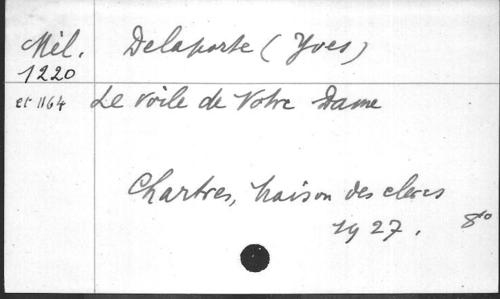 Mél. Delaporte (Yves)
1220
et 1164 Le Voile de Notre Dame
Chartres, Maison des clercs
1927. 8°